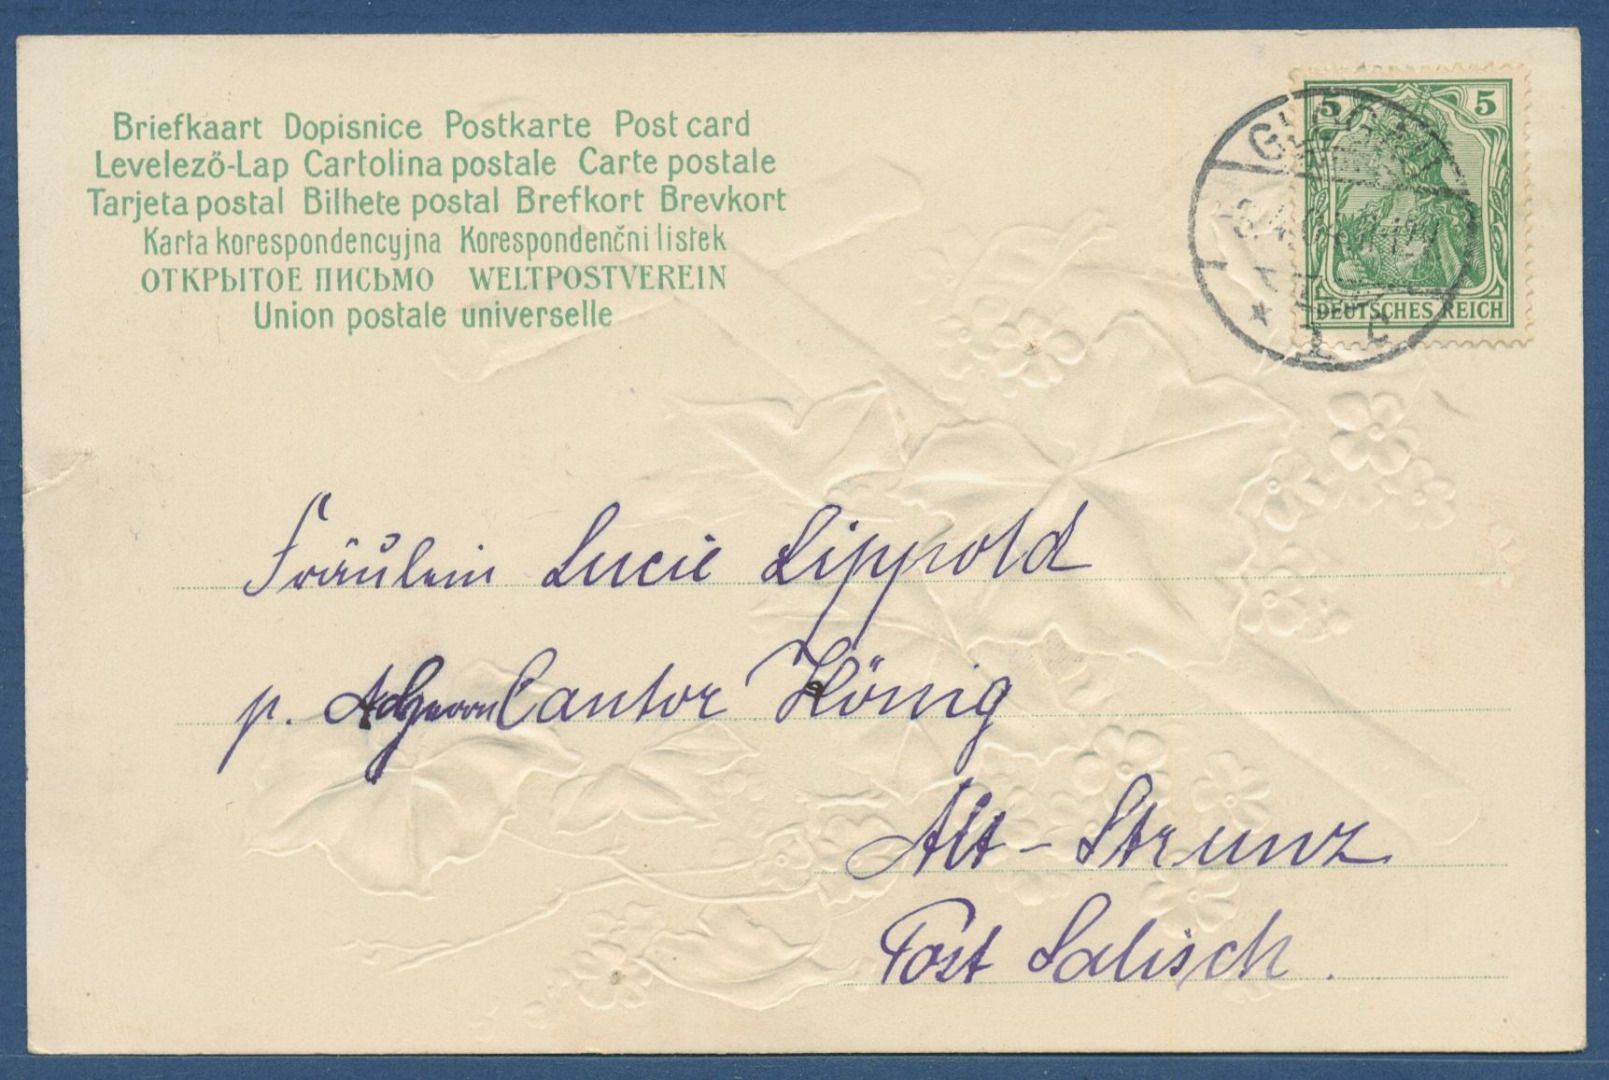 Briefkaart Dopisnice Postkarte Post card
Levelező-Lap Cartolina postale Carte postale
Tarjeta postal Bilhete postal Brefkort Brevkort
Karta korespondencyjna Korespondenčni listek
ОТКРЫТОЕ ПИСЬМО WELTPOSTVEREIN
Union postale universelle
5 5
DEUTSCHES REICH
GLOGAU
* 1 c
Fräulein Lucie Lippold
p. Cantor König
Alt-Strunz
Post Salisch.